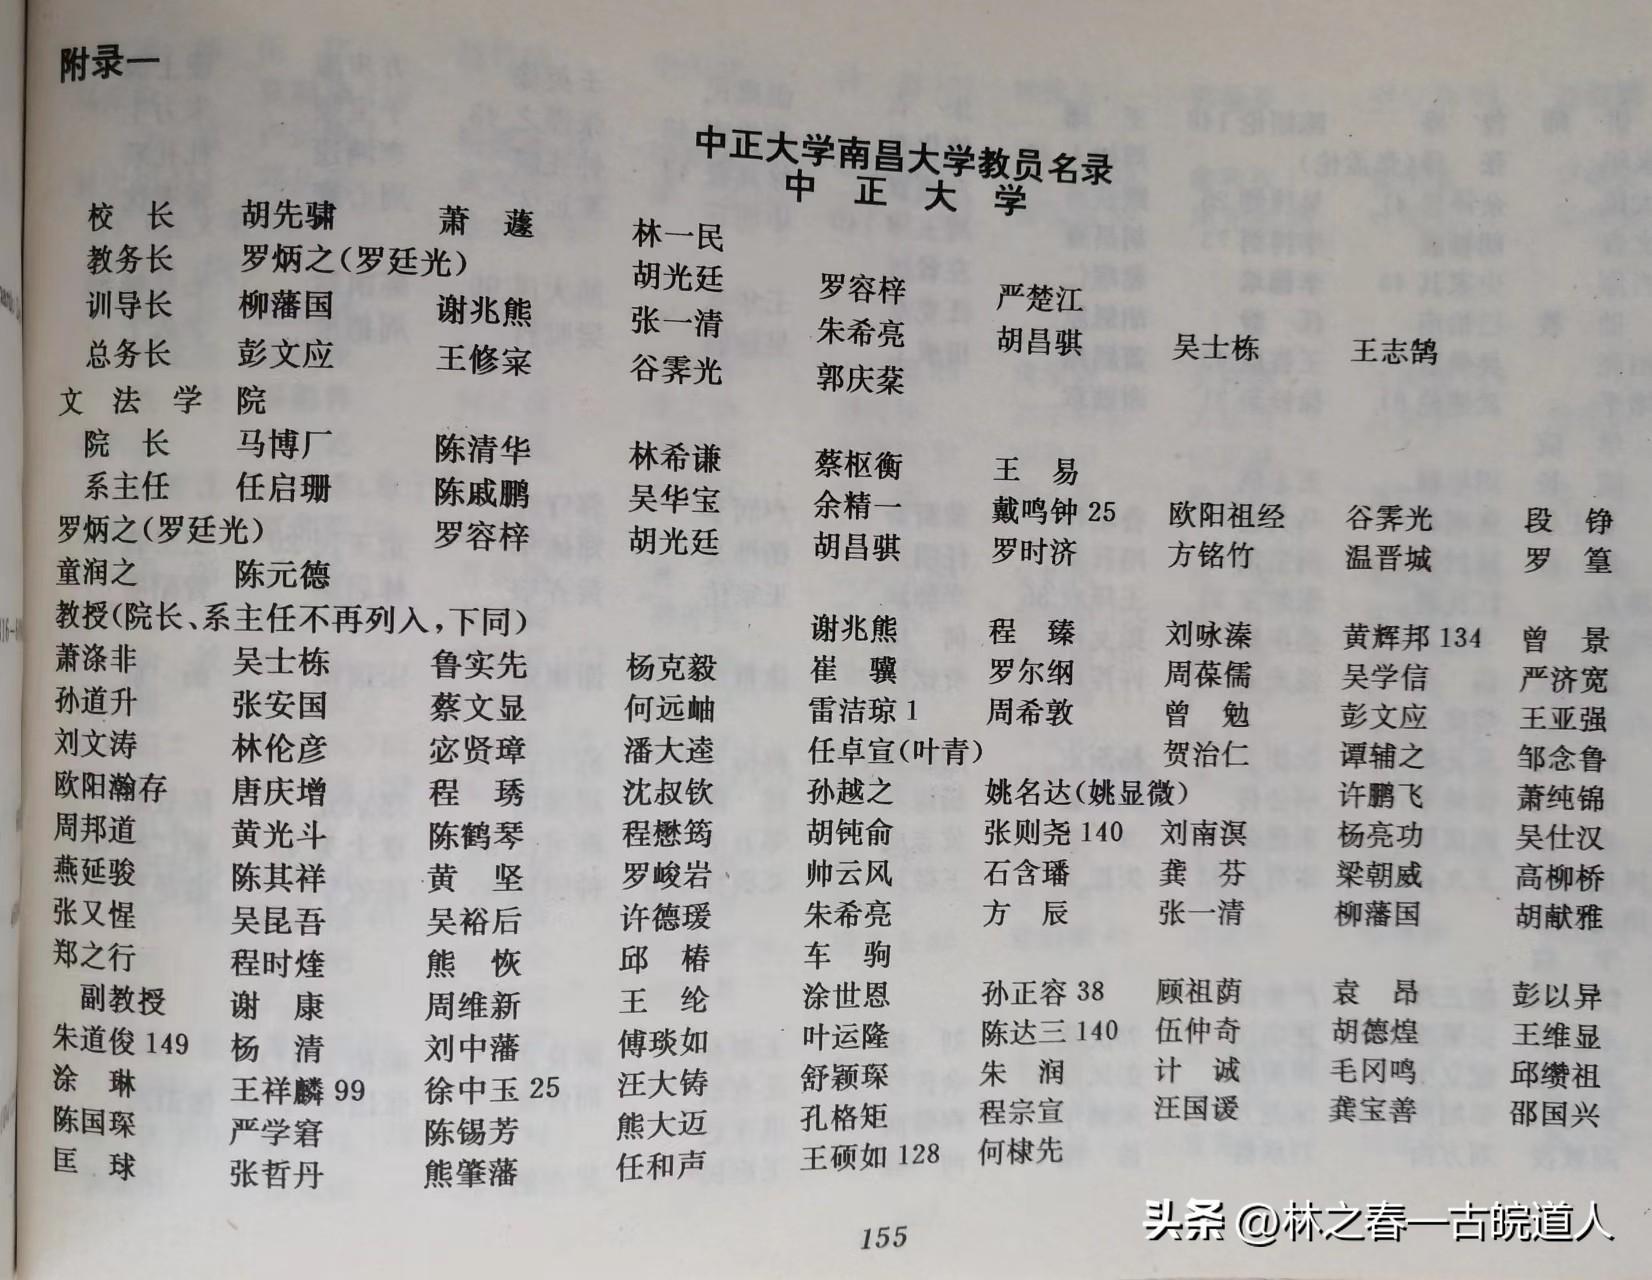 附录一
中正大学南昌大学教员名录
中正大学
校长 胡先骕 萧蘧 林一民
教务长 罗炳之(罗廷光) 胡光廷 罗容梓 严楚江
训导长 柳藩国 谢兆熊 张一清 朱希亮 胡昌骐 吴士栋 王志鹄
总务长 彭文应 王修寀 谷霁光 郭庆棻
文法学院
院长 马博厂 陈清华 林希谦 蔡枢衡 王易
系主任 任启珊 陈戚鹏 吴华宝 余精一 戴鸣钟25 欧阳祖经 谷霁光 段铮
罗炳之(罗廷光) 罗容梓 胡光廷 胡昌骐 罗时济 方铭竹 温晋城 罗篁
童润之 陈元德
教授(院长、系主任不再列入,下同) 谢兆熊 程臻 刘咏溱 黄辉邦134 曾景
萧涤非 吴士栋 鲁实先 杨克毅 崔骥 罗尔纲 周葆儒 吴学信 严济宽
孙道升 张安国 蔡文显 何远岫 雷洁琼1 周希敦 曾勉 彭文应 王亚强
刘文涛 林伦彦 宓贤璋 潘大逵 任卓宣(叶青) 贺治仁 谭辅之 邹念鲁
欧阳瀚存 唐庆增 程琇 沈叔钦 孙越之 姚名达(姚显微) 许鹏飞 萧纯锦
周邦道 黄光斗 陈鹤琴 程懋筠 胡钝俞 张则尧140 刘南溟 杨亮功 吴仕汉
燕延骏 陈其祥 黄坚 罗峻岩 帅云风 石含璠 龚芬 梁朝威 高柳桥
张又惺 吴昆吾 吴裕后 许德瑗 朱希亮 方辰 张一清 柳藩国 胡献雅
郑之行 程时煃 熊恢 邱椿 车驹
副教授 谢康 周维新 王纶 涂世恩 孙正容38 顾祖荫 袁昂 彭以异
朱道俊149 杨清 刘中藩 傅琰如 叶运隆 陈达三140 伍仲奇 胡德煌 王维显
涂琳 王祥麟99 徐中玉25 汪大铸 舒颖琛 朱润 计诚 毛冈鸣 邱缵祖
陈国琛 严学窘 陈锡芳 熊大迈 孔格矩 程宗宣 汪国谖 龚宝善 邵国兴
匡球 张哲丹 熊肇藩 任和声 王硕如128 何棣先
155
头条 @林之春—古皖道人